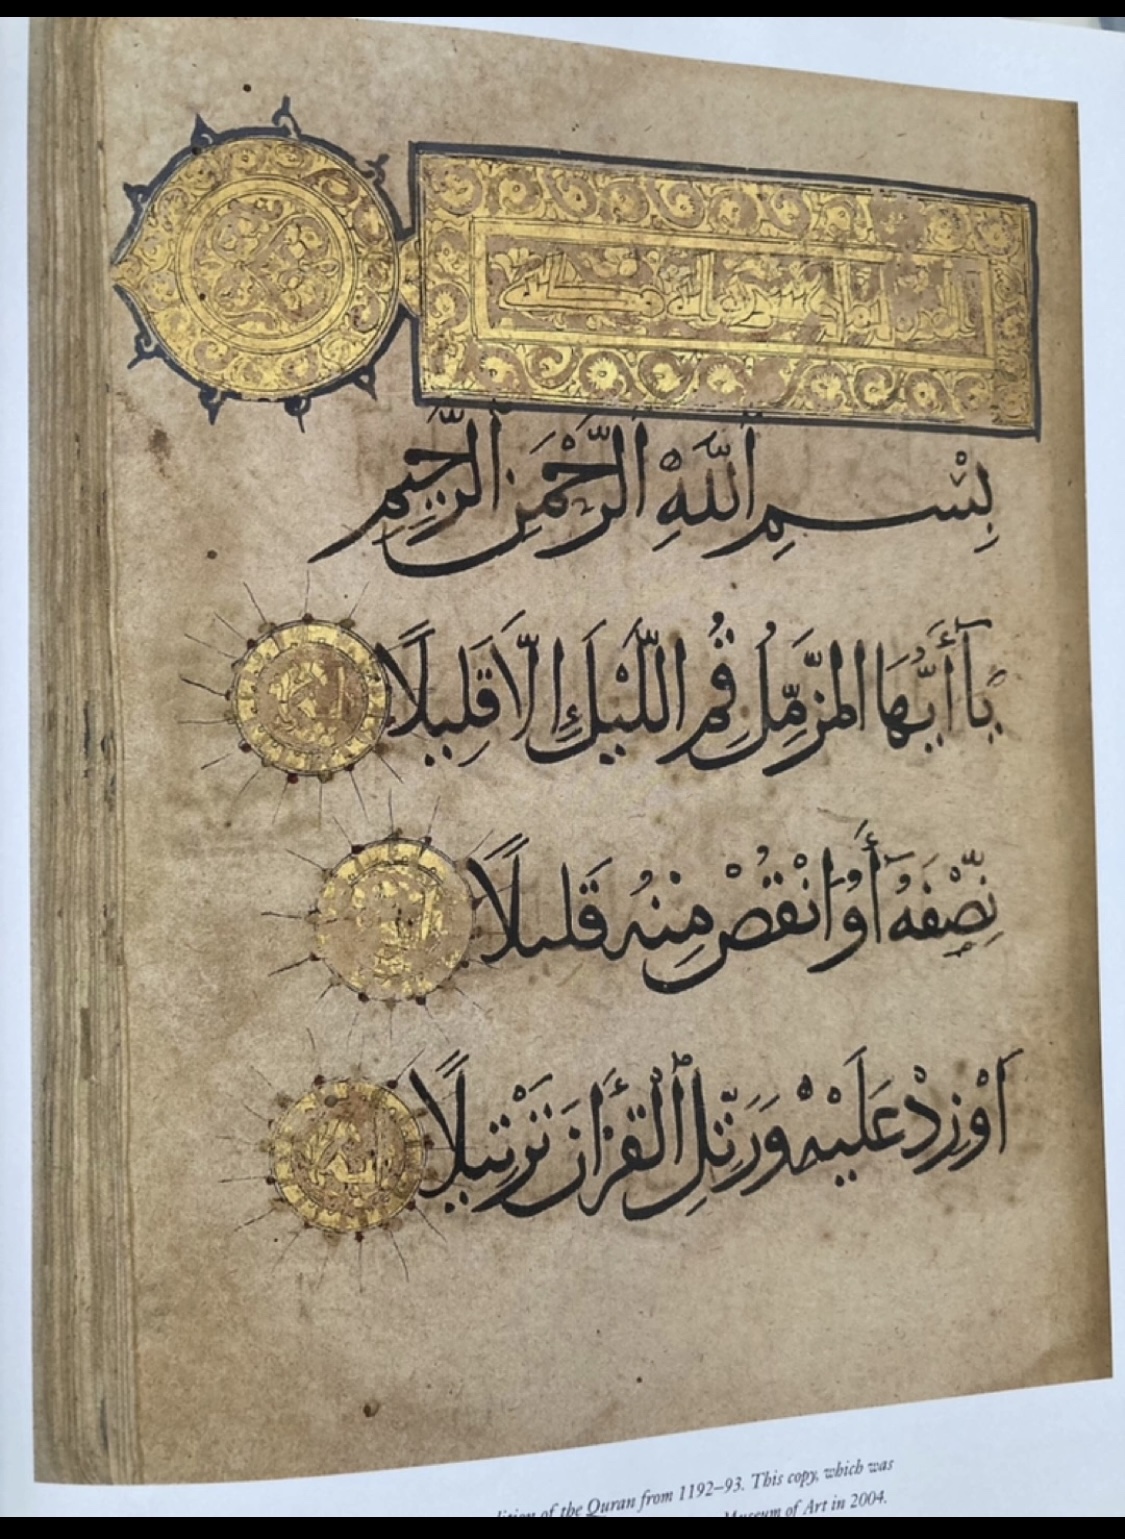 بِسْمِ اللَّهِ الرَّحْمَنِ الرَّحِيمِ
يَآ أَيُّهَا الْمُزَّمِّلُ قُمِ اللَّيْلَ إِلَّا قَلِيلًا
نِّصْفَهُ أَوُ انْقُصْ مِنْهُ قَلِيلًا
أَوْ زِدْ عَلَيْهِ وَرَتِّلِ الْقُرْآنَ تَرْتِيلًا
of the Quran from 1192–93. This copy, which was
Museum of Art in 2004.